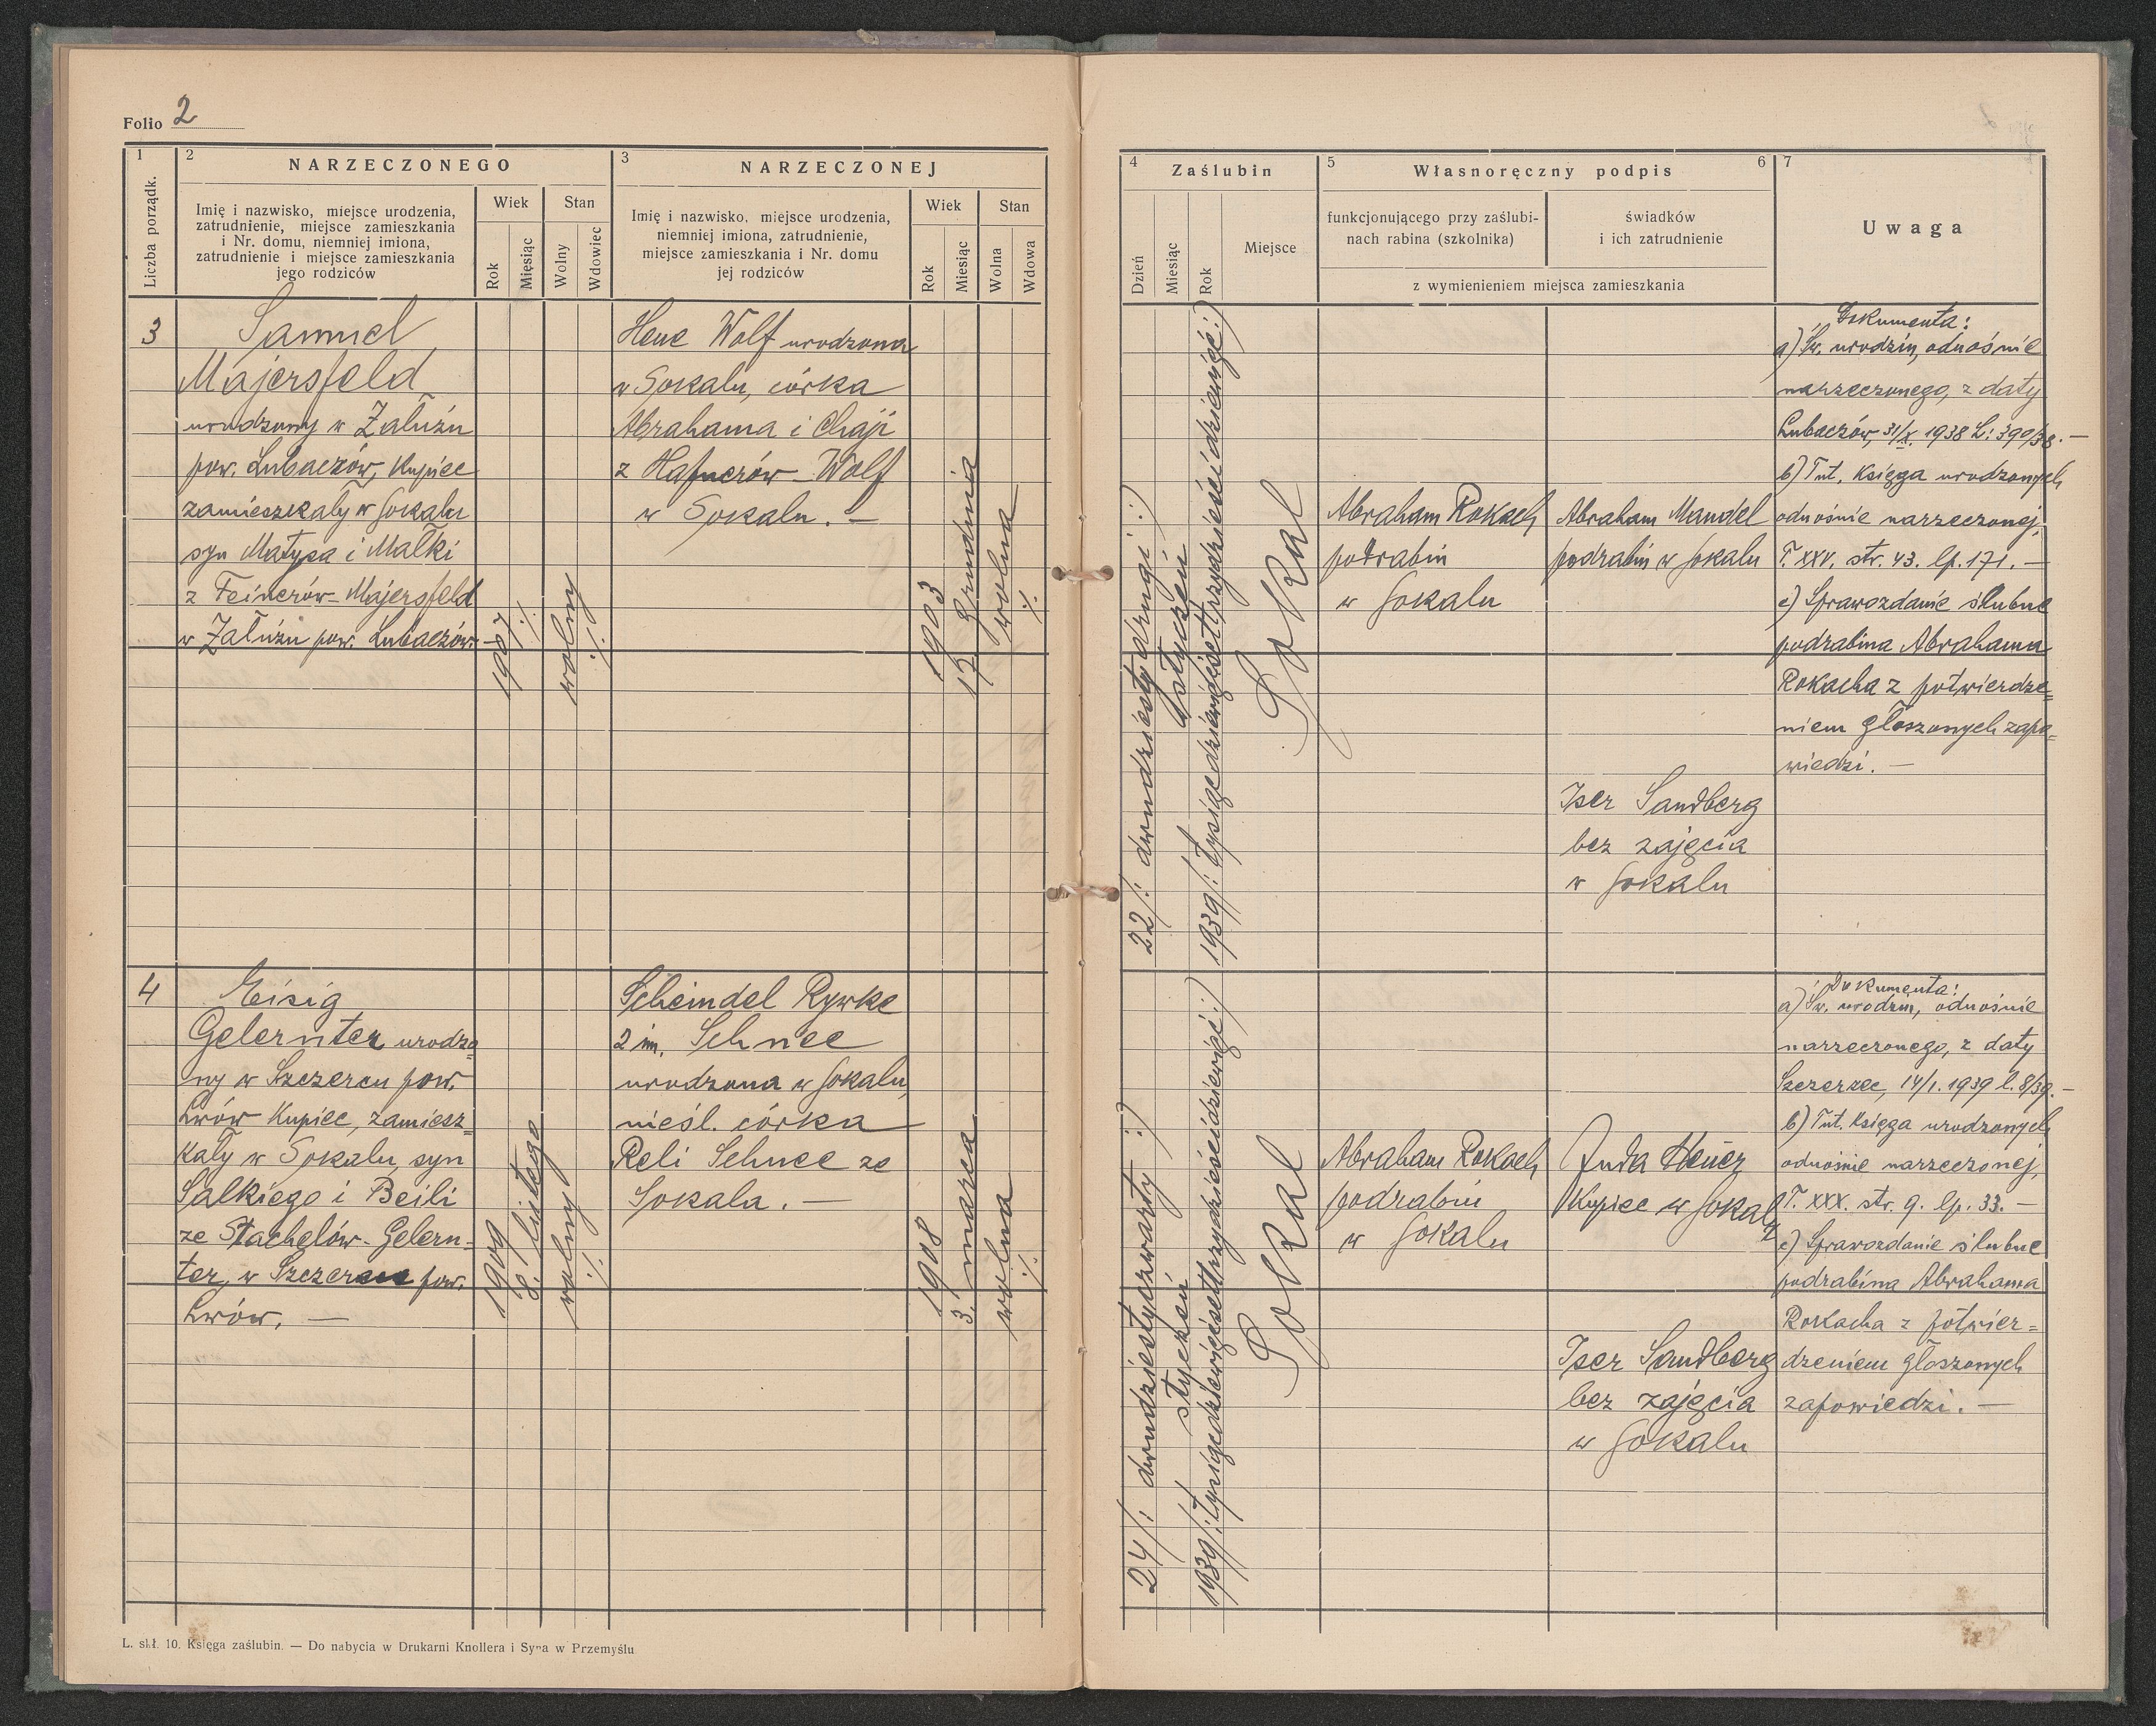 Folio 2
1
2 NARZECZONEGO
3 NARZECZONEJ
Liczba porządk.
Imię i nazwisko, miejsce urodzenia,
zatrudnienie, miejsce zamieszkania
i Nr. domu, niemniej imiona,
zatrudnienie i miejsce zamieszkania
jego rodziców
Wiek
Rok
Miesiąc
Stan
Wolny
Wdowiec
Imię i nazwisko, miejsce urodzenia,
niemniej imiona, zatrudnienie,
miejsce zamieszkania i Nr. domu
jej rodziców
Wiek
Rok
Miesiąc
Stan
Wolna
Wdowa
3
Samuel
Majersfeld
urodzony w Załużu
pow. Lubaczów, kupiec
zamieszkały w Sokalu
syn Matysa i Małki
z Feinerów-Majersfeld
w Załużu pow. Lubaczów.-
1907
./.
wolny
./.
Hene Wolf urodzona
w Sokalu, córka
Abrahama i Chaji
z Hafnerów-Wolf
w Sokalu. —
1903
17. grudnia
wolna
./.
4
Eisig
Gelernter urodzo
ny w Szczercu pow.
Lwów kupiec, zamiesz=
kały w Sokalu, syn
Salkiego i Beili
ze Stachelów-Gelern=
ter, w Szczercu pow.
Lwów. —
1909
8. lutego
wolny
./.
Scheindel Rywke
2 im. Schnee
urodzona w Sokalu,
nieśl. córka
Reli Schnee ze
Sokala. —
1908
3. marca
wolna
./.
L. skł. 10. Księga zaślubin. — Do nabycia w Drukarni Knollera i Syna w Przemyślu
4 Zaślubin
5 Własnoręczny podpis 6
7
Dzień
Miesiąc
Rok
Miejsce
funkcjonującego przy zaślubi-
nach rabina (szkolnika)
świadków
i ich zatrudnienie
z wymienieniem miejsca zamieszkania
Uwaga
22/: dwudziesty drugi :)
styczeń
1939/: tysiąc dziewięćset trzydzieści dziewięć :)
Sokal
Abraham Rokach
podrabin
w Sokalu
Abraham Mandel
podrabin w Sokalu
Iser Sandberg
bez zajęcia
w Sokalu
Dokumenta:
a) Św. urodzin, odnośnie
narzeczonego, z daty
Lubaczów, 31/X. 1938 L: 390/38. —
b) Tut. księga urodzonych
odnośnie narzeczonej,
T. XXV. str. 43. lp. 171. —
c) Sprawozdanie ślubne
podrabina Abrahama
Rokacha z potwierdze=
niem głoszonych zapo=
wiedzi. —
24/: dwudziesty czwarty :)
styczeń
1939/: tysiąc dziewięćset trzydzieści dziewięć :)
Sokal
Abraham Rokach
podrabin
w Sokalu
Juda
kupiec w Sokalu
Iser Sandberg
bez zajęcia
w Sokalu
Dokumenta:
a) Św. urodzin, odnośnie
narzeczonego, z daty
Szczerzec, 14/I. 1939 l. 8/39. —
b) Tut. księga urodzonych
odnośnie narzeczonej,
T. XXX. str. 9. lp. 33. —
c) Sprawozdanie ślubne
podrabina Abrahama
Rokacha z potwier=
dzeniem głoszonych
zapowiedzi. —